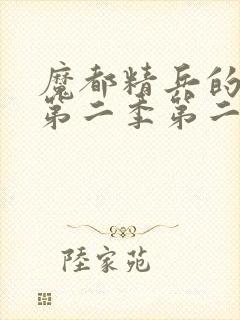 魔都精兵的
第二季第二
陸家苑